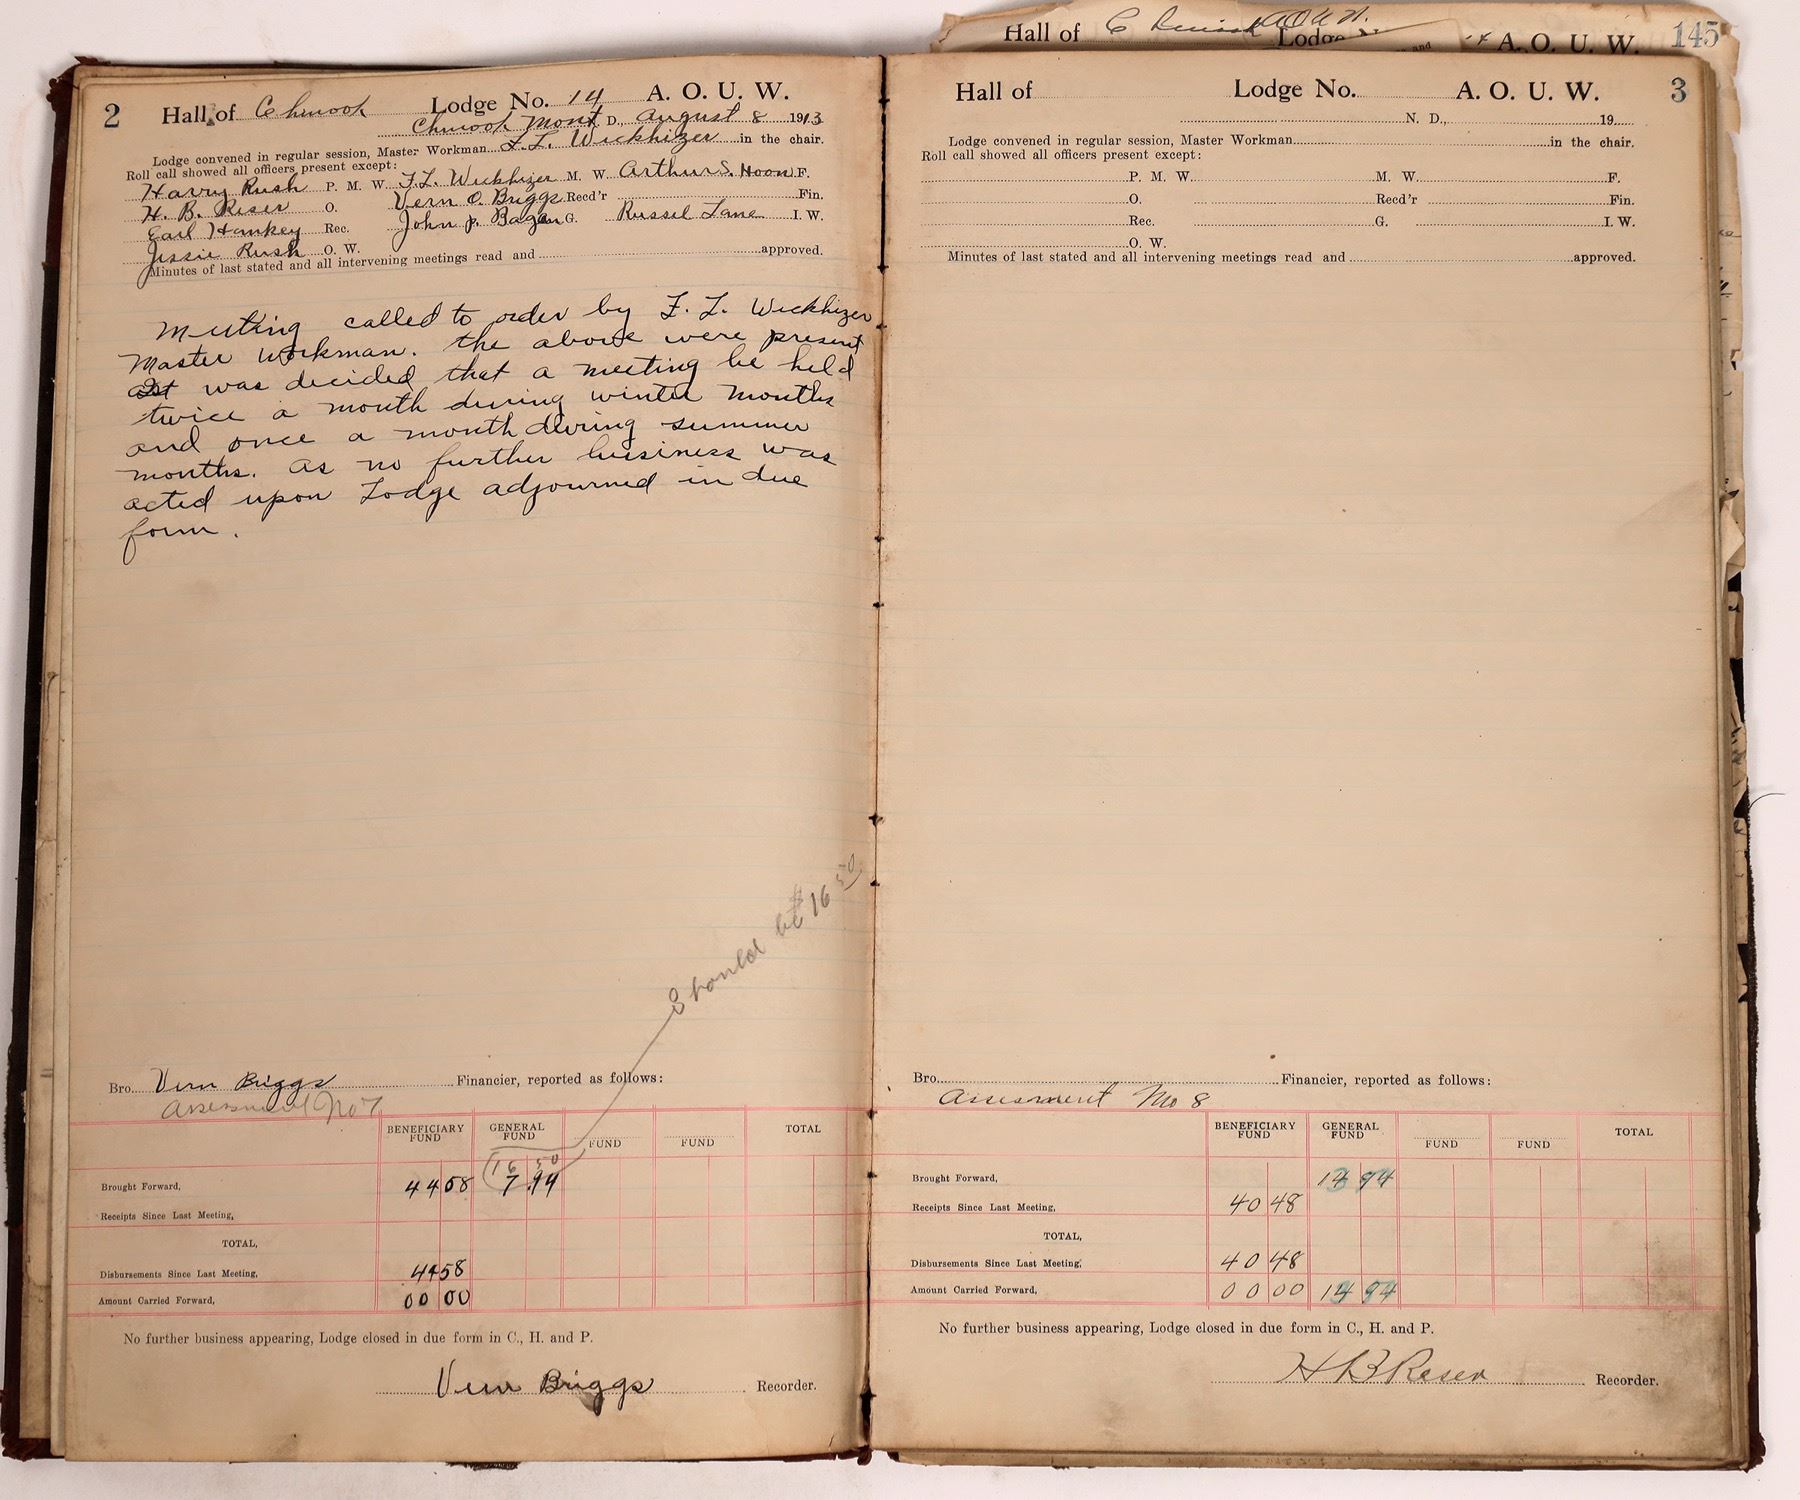 Hall of C Lodge A. O. U. W. 145
2 Hall of Chinook Lodge No. 14 A. O. U. W.
Chinook Mont D., August 8 1913
Lodge convened in regular session, Master Workman F. L. Wickhizer in the chair.
Roll call showed all officers present except:
Harry Rush P. M. W. F. L. Wickhizer M. W. Arthur S. Noon F.
H. B. Reser O. Vern O. Briggs Recd'r Fin.
Earl Hankey Rec. John P. Bagan G. Russel Lane I. W.
Jessie Rush O. W.
Minutes of last stated and all intervening meetings read and approved.
Meeting called to order by F. L. Wickhizer
Master Workman. the above were present
was decided that a meeting be held
twice a month during winter months
and once a month during summer
months. As no further business was
acted upon Lodge adjourned in due
form.
Should be $16 50
Bro. Vern Briggs Financier, reported as follows:
Assessment No 7
BENEFICIARY FUND GENERAL FUND FUND FUND TOTAL
16 50
Brought Forward, 44 58 7.94
Receipts Since Last Meeting,
TOTAL,
Disbursements Since Last Meeting, 44 58
Amount Carried Forward, 00 00
No further business appearing, Lodge closed in due form in C., H. and P.
Vern Briggs Recorder.
Hall of Lodge No. A. O. U. W. 3
N. D., 19
Lodge convened in regular session, Master Workman in the chair.
Roll call showed all officers present except:
P. M. W. M. W. F.
O. Recd'r Fin.
Rec. G. I. W.
O. W.
Minutes of last stated and all intervening meetings read and approved.
Bro. Financier, reported as follows:
Assesment No 8
BENEFICIARY FUND GENERAL FUND FUND FUND TOTAL
Brought Forward, 14 94
Receipts Since Last Meeting, 40 48
TOTAL,
Disbursements Since Last Meeting, 40 48
Amount Carried Forward, 00 00 14 94
No further business appearing, Lodge closed in due form in C., H. and P.
H B Reser Recorder.